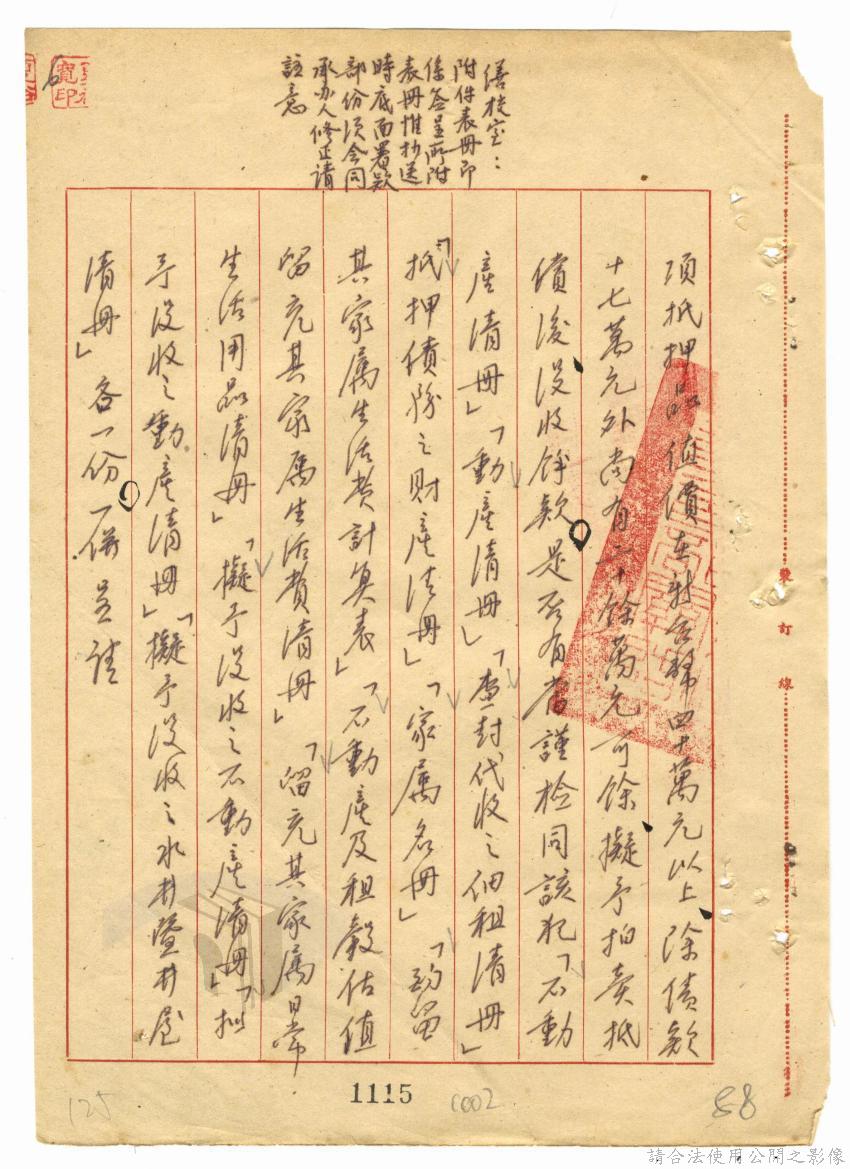 繕校室：
附件表冊印
係簽呈所附
表冊惟抄送
時底面署款
部份須會同
承办人修正請
註意
項抵押品值價在新台幣四十萬元以上、除債款
十七萬元外尚有二十餘萬元可餘、擬予拍卖抵
債後、沒收餘款。是否有當謹檢同該犯「不動
產清冊」「動產清冊」「查封代收之佃租清冊」
「抵押債務之財產清冊」「家属名冊」「酌留
其家属生活費計算表」「不動產及租穀估值
留充其家属生活費清冊」「留充其家属日常
生活用品清冊」「擬予沒收之不動產清冊」「拟
予沒收之動產清冊」「擬予沒收之水井暨井屋
清冊」各一份。併呈請
裝訂線
1115
125
1002
88
請合法使用公開之影像